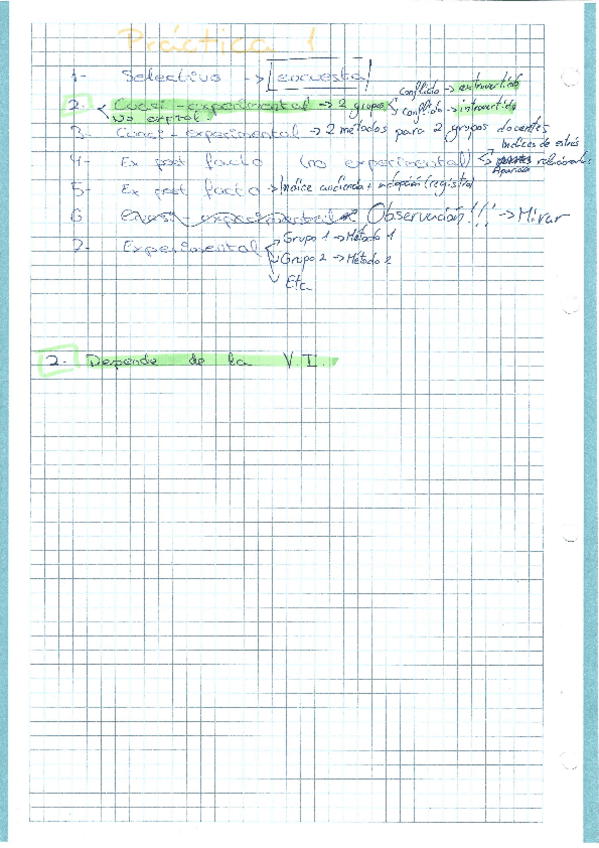 Práctica 1
1- Selectivo -> encuesta
2- Cuasi-experimental -> 2 grupos conflicto -> extrovertido
conflicto -> introvertido
No exptal.
3- Cuasi-experimental -> 2 métodos para 2 grupos docentes
4- Ex post facto (no experimental) Indices de estrés
relacionado
Aparición
5- Ex post facto -> Indice audiencia + adopción (registra)
6 Cuasi-experimental Observación!!! -> Mirar
7- Experimental Grupo 1 -> Método 1
Grupo 2 -> Método 2
Etc
2. Depende de la V.I.